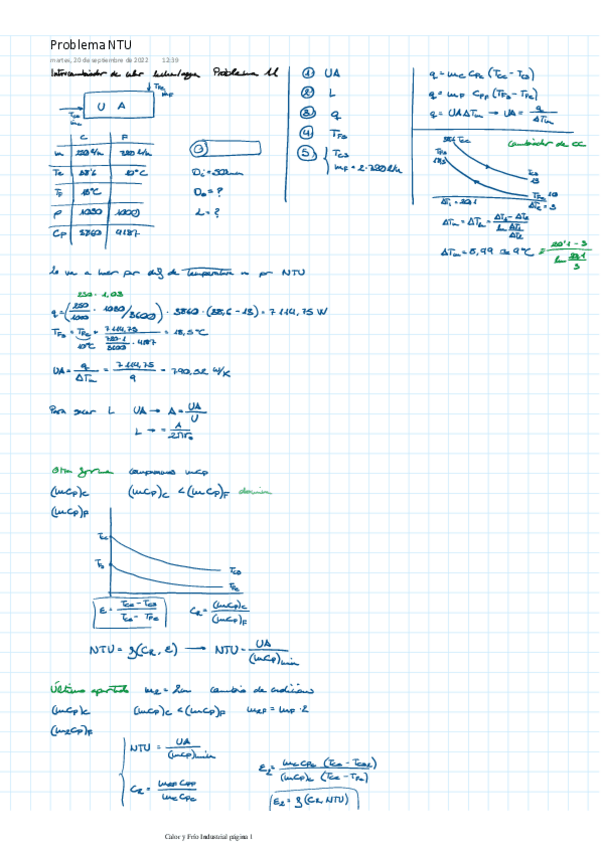 Problema NTU
martes, 20 de septiembre de 2022 12:19
Intercambiador de calor Problema 11
U A
C F
m 250 l/h 780 l/h
Te 38'6 10ºC
Ts 13ºC
ρ 1030 1000
Cp 3860 4187
Di = 50mm
De = ?
L = ?
① UA
② L
③ q
④ TFs
⑤ Tcs
mF = 2·780 l/h
q = mc Cpc (Tce - Tcs)
q = mF CpF (TFs - TFe)
q = UA ΔTm → UA = q / ΔTm
Cambiador de CC
38'6 Tce
TFs 18,5
Tcs 13
TFe 10
Δt1 = 20'1
Δt2 = 3
ΔTm = 8,99 ≈ 9ºC = 20'1 - 3 / Ln 20'1 / 3
Lo voy a hacer por dif de Temperatura o por NTU
250 · 1,03
q = (250/1000 · 1030/3600) · 3860 · (38,6 - 13) = 7114,75 W
TFs = TFe + 7114,75 / 780·1/3600 · 4187 = 18,5ºC
10ºC
UA = q / ΔTm = 7114,75 / 9 = 790,52 W/K
Para sacar L UA → A = UA / U
Otra forma comparamos mCp
(mCp)c (mCp)c < (mCp)F
(mCp)F
Tce
Tcs
TFe
ε = Tce - Tcs / Tce - TFe
CR = (mCp)c / (mCp)F
NTU = f(CR, ε) → NTU = UA / (mCp)min
Último apartado cambio de condiciones
(mCp)c (mCp)c < (mCp)F m2F = mF · 2
NTU = UA / (mCp)min
ε2 = mc Cpc (Tce - Tcs2) / (mCp)c (Tce - TFe)
ε2 = f(CR, NTU)
Calor y Frío Industrial página 1